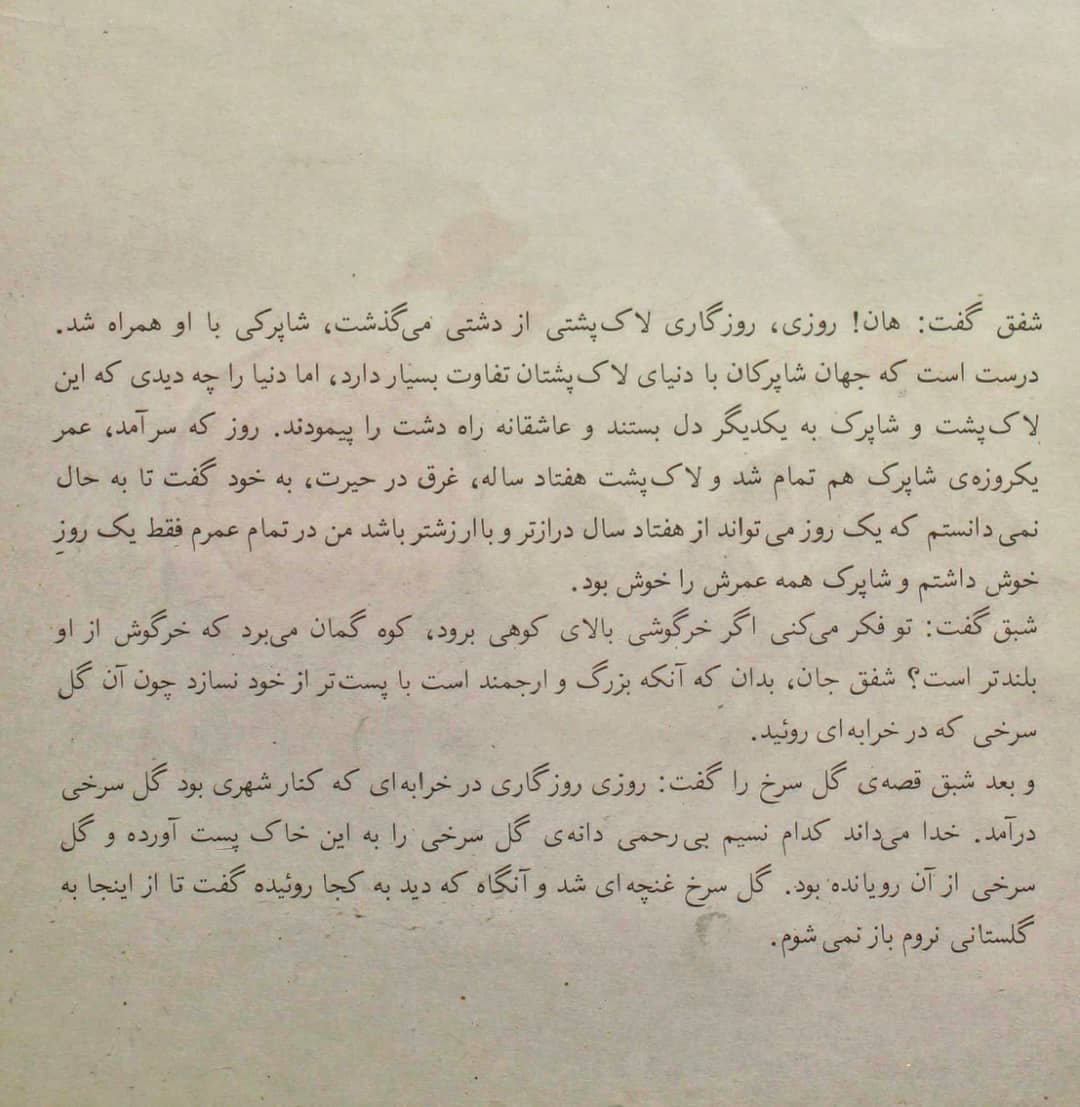 شفق گفت: هان! روزی، روزگاری لاک‌پشتی از دشتی می‌گذشت، شاپرکی با او همراه شد.
درست است که جهان شاپرکان با دنیای لاک‌پشتان تفاوت بسیار دارد، اما دنیا را چه دیدی که این
لاک‌پشت و شاپرک به یکدیگر دل بستند و عاشقانه راه دشت را پیمودند. روز که سرآمد، عمر
یکروزه‌ی شاپرک هم تمام شد و لاک‌پشت هفتاد ساله، غرق در حیرت، به خود گفت تا به حال
نمی‌دانستم که یک روز می‌تواند از هفتاد سال درازتر و باارزشتر باشد من در تمام عمرم فقط یک روزِ
خوش داشتم و شاپرک همه عمرش را خوش بود.
شبق گفت: تو فکر می‌کنی اگر خرگوشی بالای کوهی برود، کوه گمان می‌برد که خرگوش از او
بلندتر است؟ شفق جان، بدان که آنکه بزرگ و ارجمند است با پست‌تر از خود نسازد چون آن گل
سرخی که در خرابه‌ای روئید.
و بعد شبق قصه‌ی گل سرخ را گفت: روزی روزگاری در خرابه‌ای که کنار شهری بود گل سرخی
درآمد. خدا می‌داند کدام نسیم بی‌رحمی دانه‌ی گل سرخی را به این خاک پست آورده و گل
سرخی از آن رویانده بود. گل سرخ غنچه‌ای شد و آنگاه که دید به کجا روئیده گفت تا از اینجا به
گلستانی نروم باز نمی‌شوم.